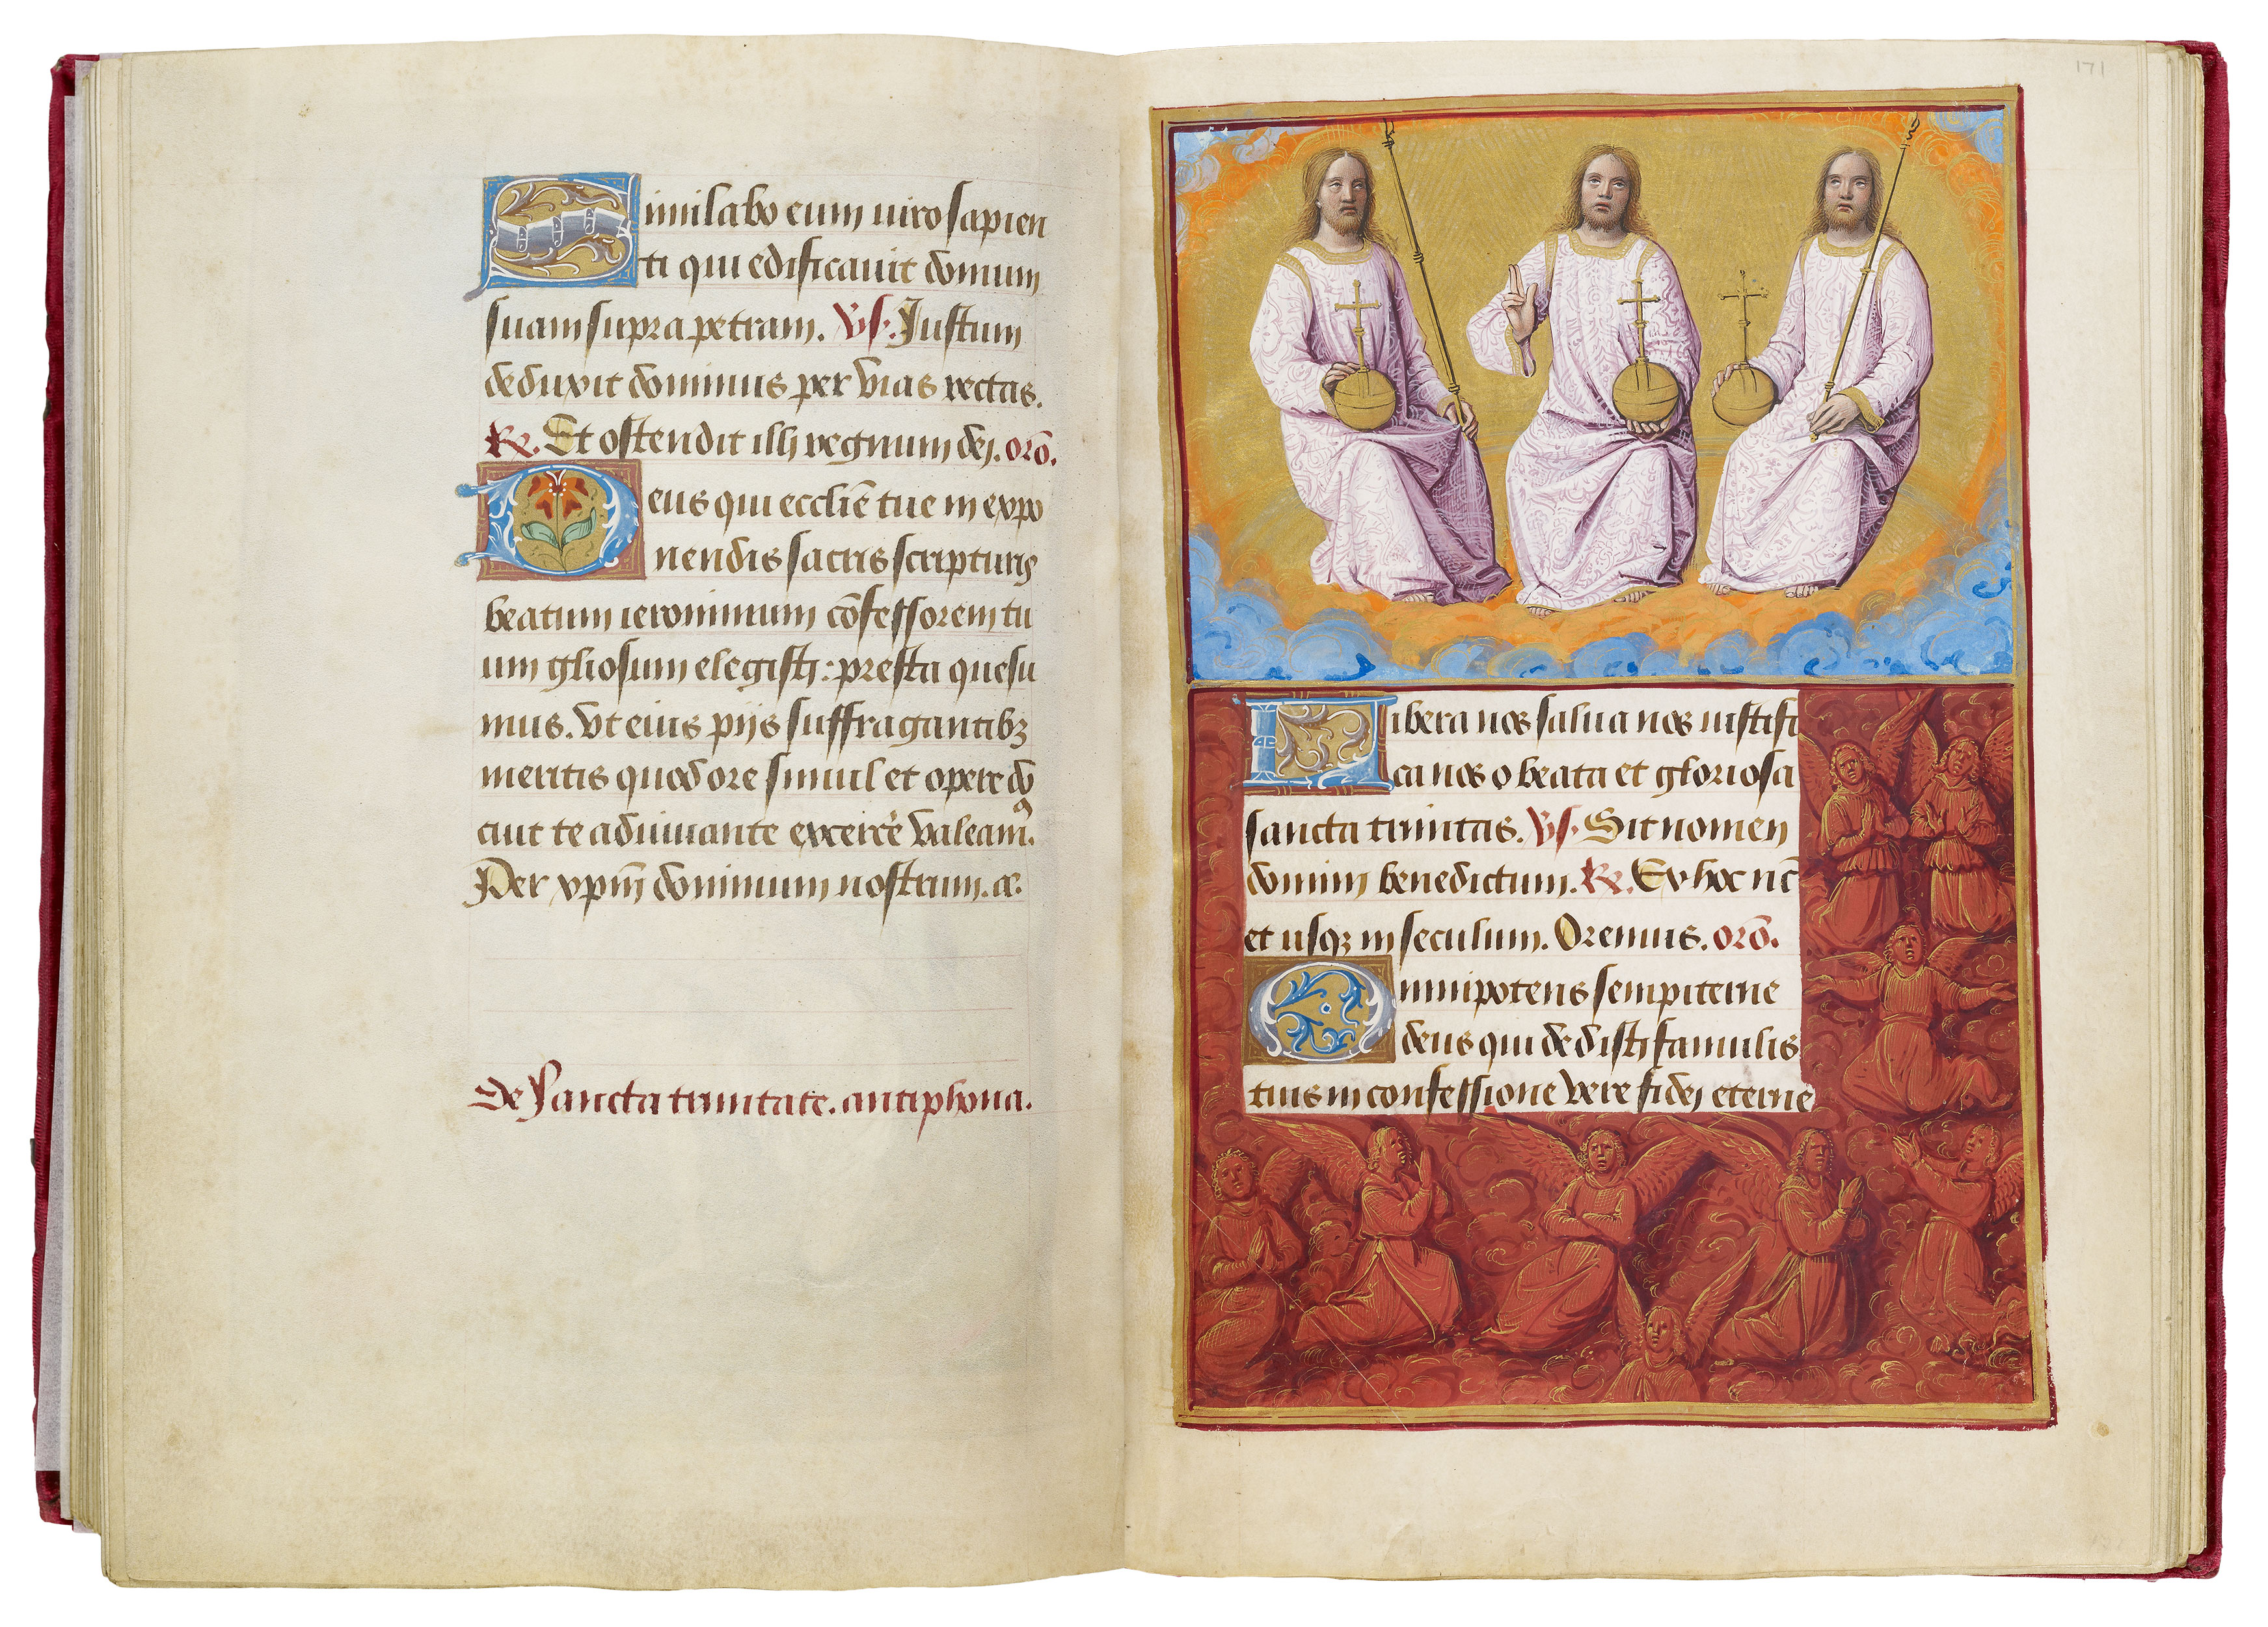 Similabo eum uiro sapien
ti qui edificauit domum
suam supra petram. Vs. Justum
deduxit dominus per vias rectas.
R. Et ostendit illi regnum dei. orō.
Deus qui ecclīe tue in expo
nendis sacris scripturis
beatum ieronimum cōfessorem tu
um gliosum elegisti: presta quesu
mus. vt eius piis suffragantibꝫ
meritis quod ore simul et opere do
cuit te adiuuante exercē valeamꝰ.
Per xpm̄ dominum nostrum. ⁊c.
De sancta trinitate. antiphona.
171
Libera nos salua nos iustifi
ca nos o beata et gloriosa
sancta trinitas. Vs. Sit nomen
domini benedictum. R. Ex hoc nc̄
et usqꝫ in seculum. Oremus. orō.
Omnipotens sempiterne
deus qui dedisti famulis
tuis in confessione vere fidei eterne